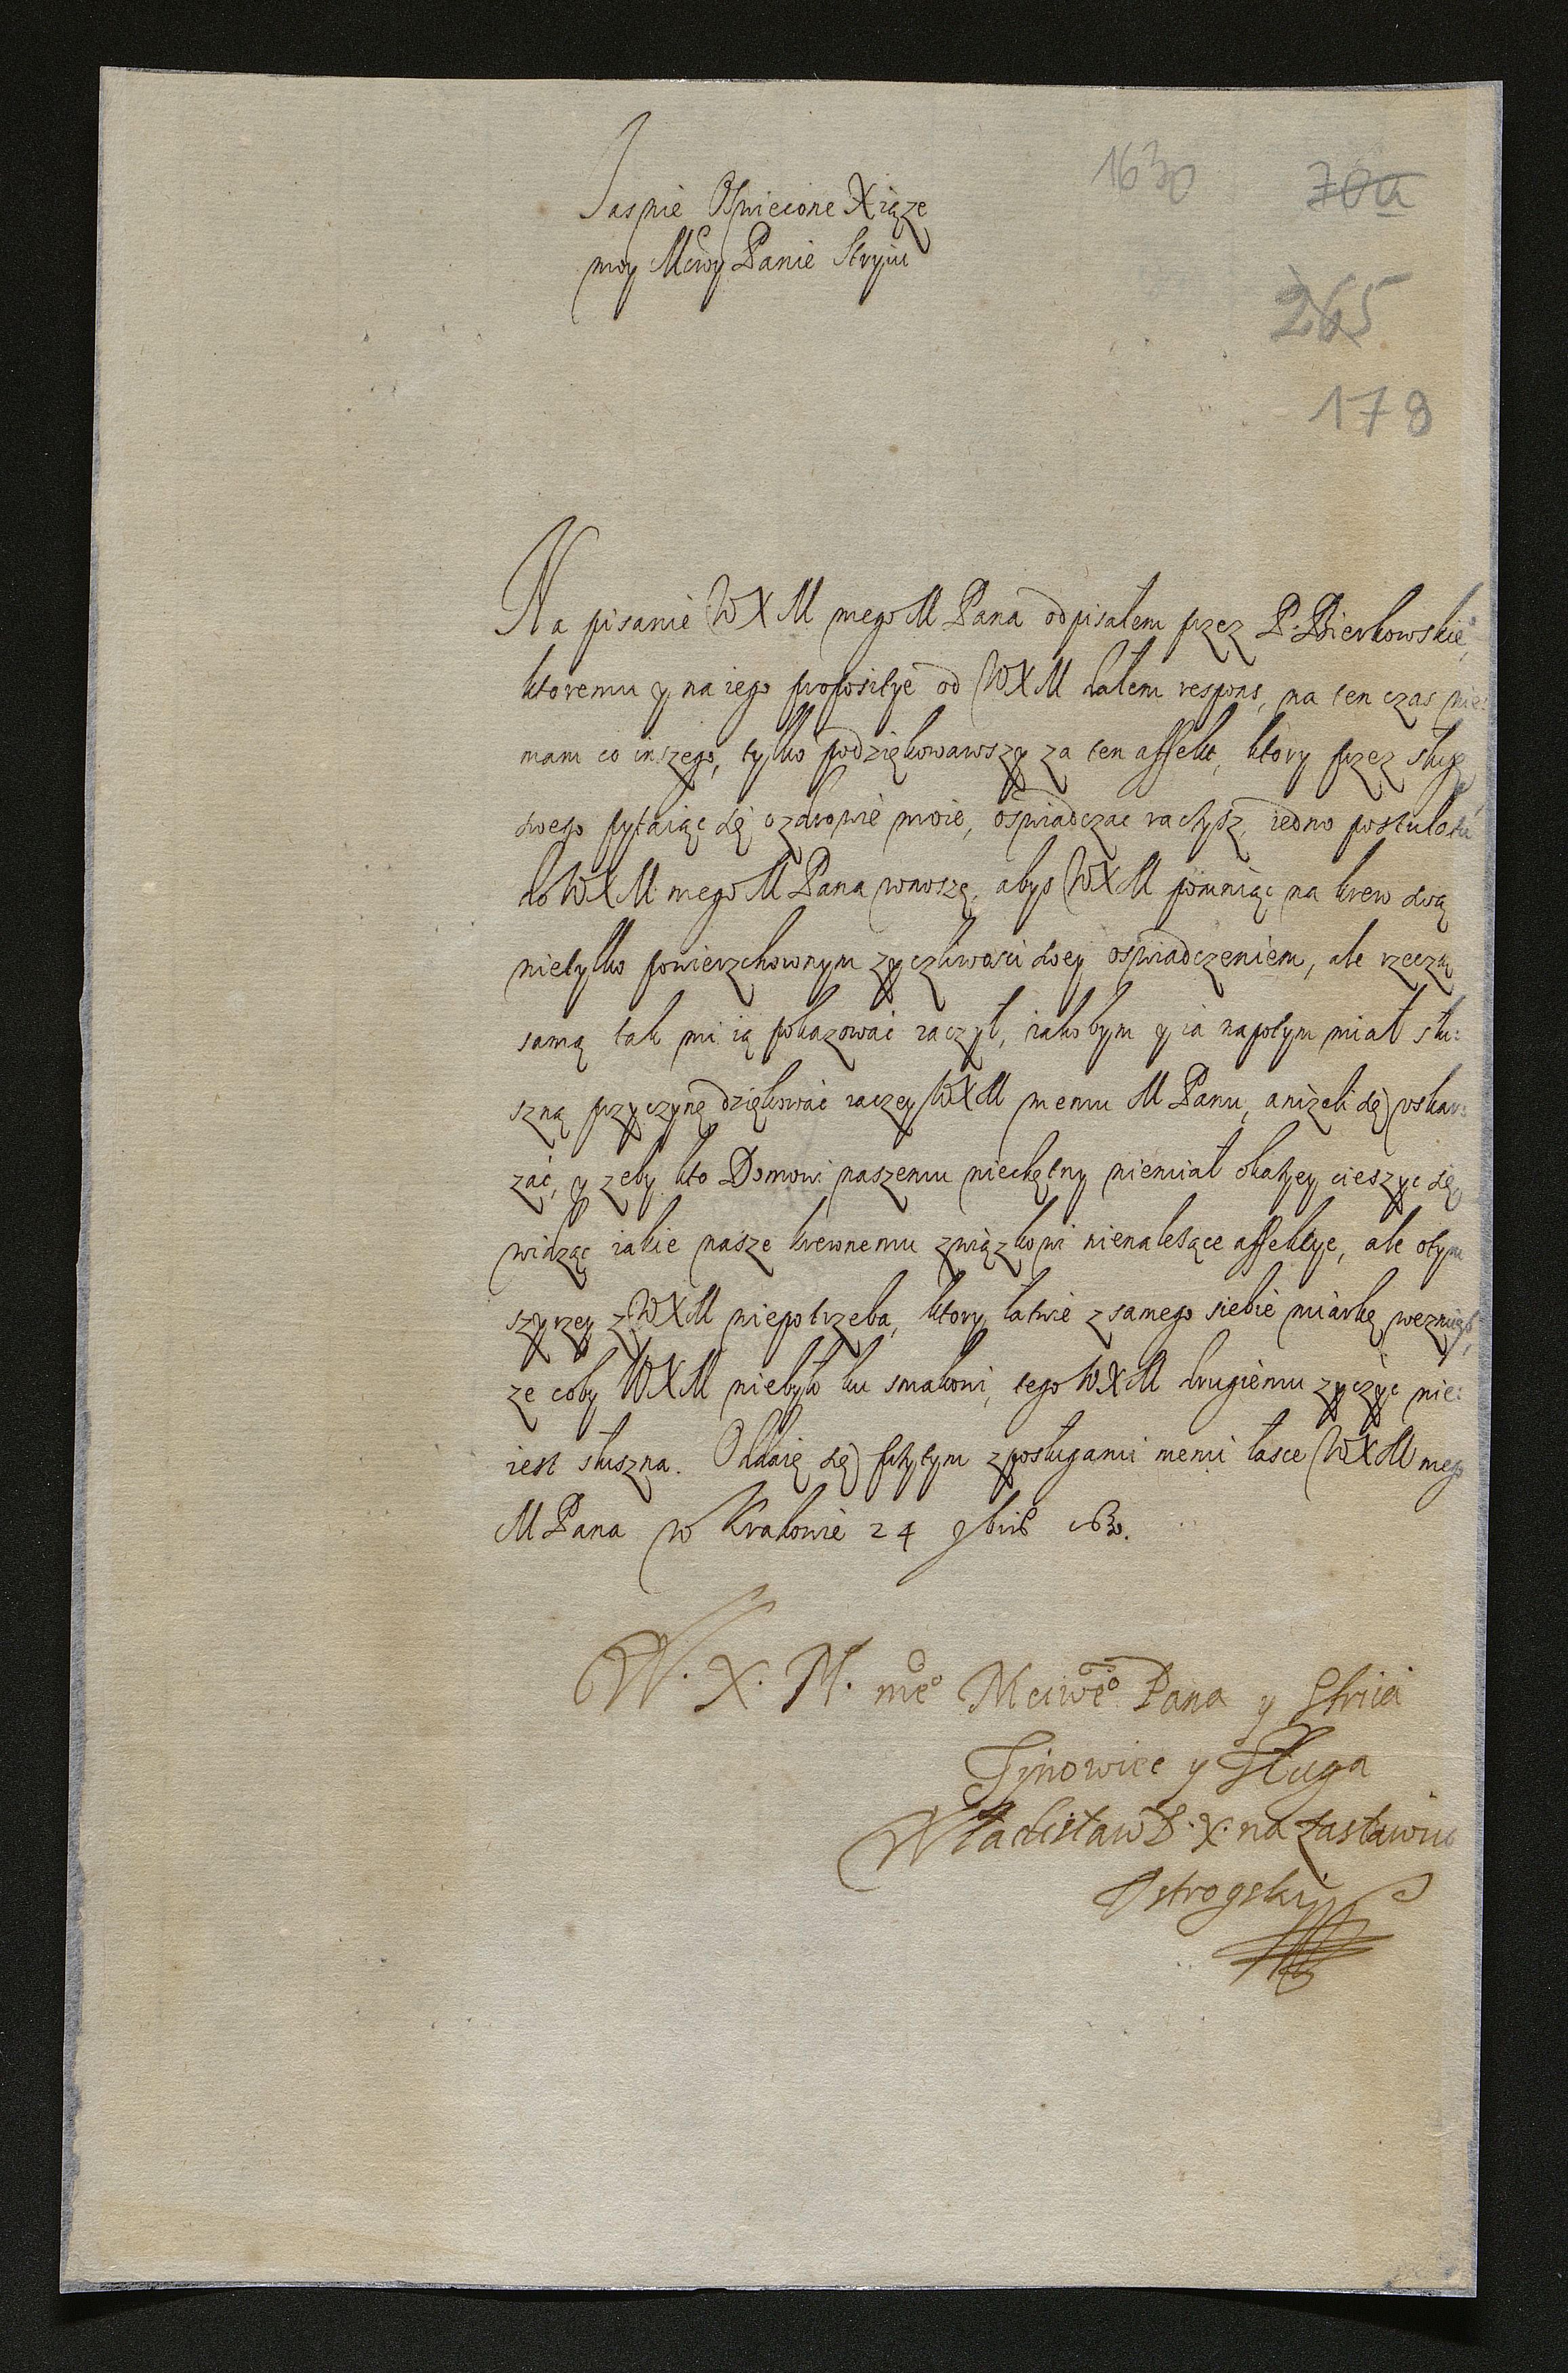 1630 70a
Jasnie Oswiecone Xiąze
moy Mciwy Panie Stryiu
265
178
Na pisanie WXM mego M Pana odpisałem przez P. Bierkowskie°,
ktoremu y na iego propositye od WXM dałem respons, na ten czas nie:
mam co inszego, tylko podziękowawszy za ten affekt, ktory przez sługę
swego pytaiąc się o zdrowie moie, oswiadczac raczysz, iedno postulatū
do WXM mego M Pana wnoszę, abys WXM pomniąc na krew swą
nietylko powierzchownym zyczliwosci swey oswiadczeniem, ale rzeczą
samą tak mi ią pokazować raczył, iakobym y ia napotym miał słu:
szną przyczynę dziękować raczey WXM memu M Panu, aniżeli się vskar:
zać, y zeby kto Domowi naszemu niechętny niemiał okazyey cieszyc się,
widząc iakie nasze krewnemu związkowi nienalezące affektye, ale otym
szyrzey z WXM niepotrzeba, ktory łatwie z samego siebie miarkę wezmiesz,
ze coby WXM niebyło ku smakowi, tego WXM drugiemu zyczyc nie:
iest słuszna. Oddaię się przytym z posługami memi łasce WXM mego
M Pana w Krakowie 24 9bris 1630.
W. X. M. me° Mciwe° Pana y Striia
Synowiec y Sługa
Władisław D. X. na Zasławiu
Ostrogski